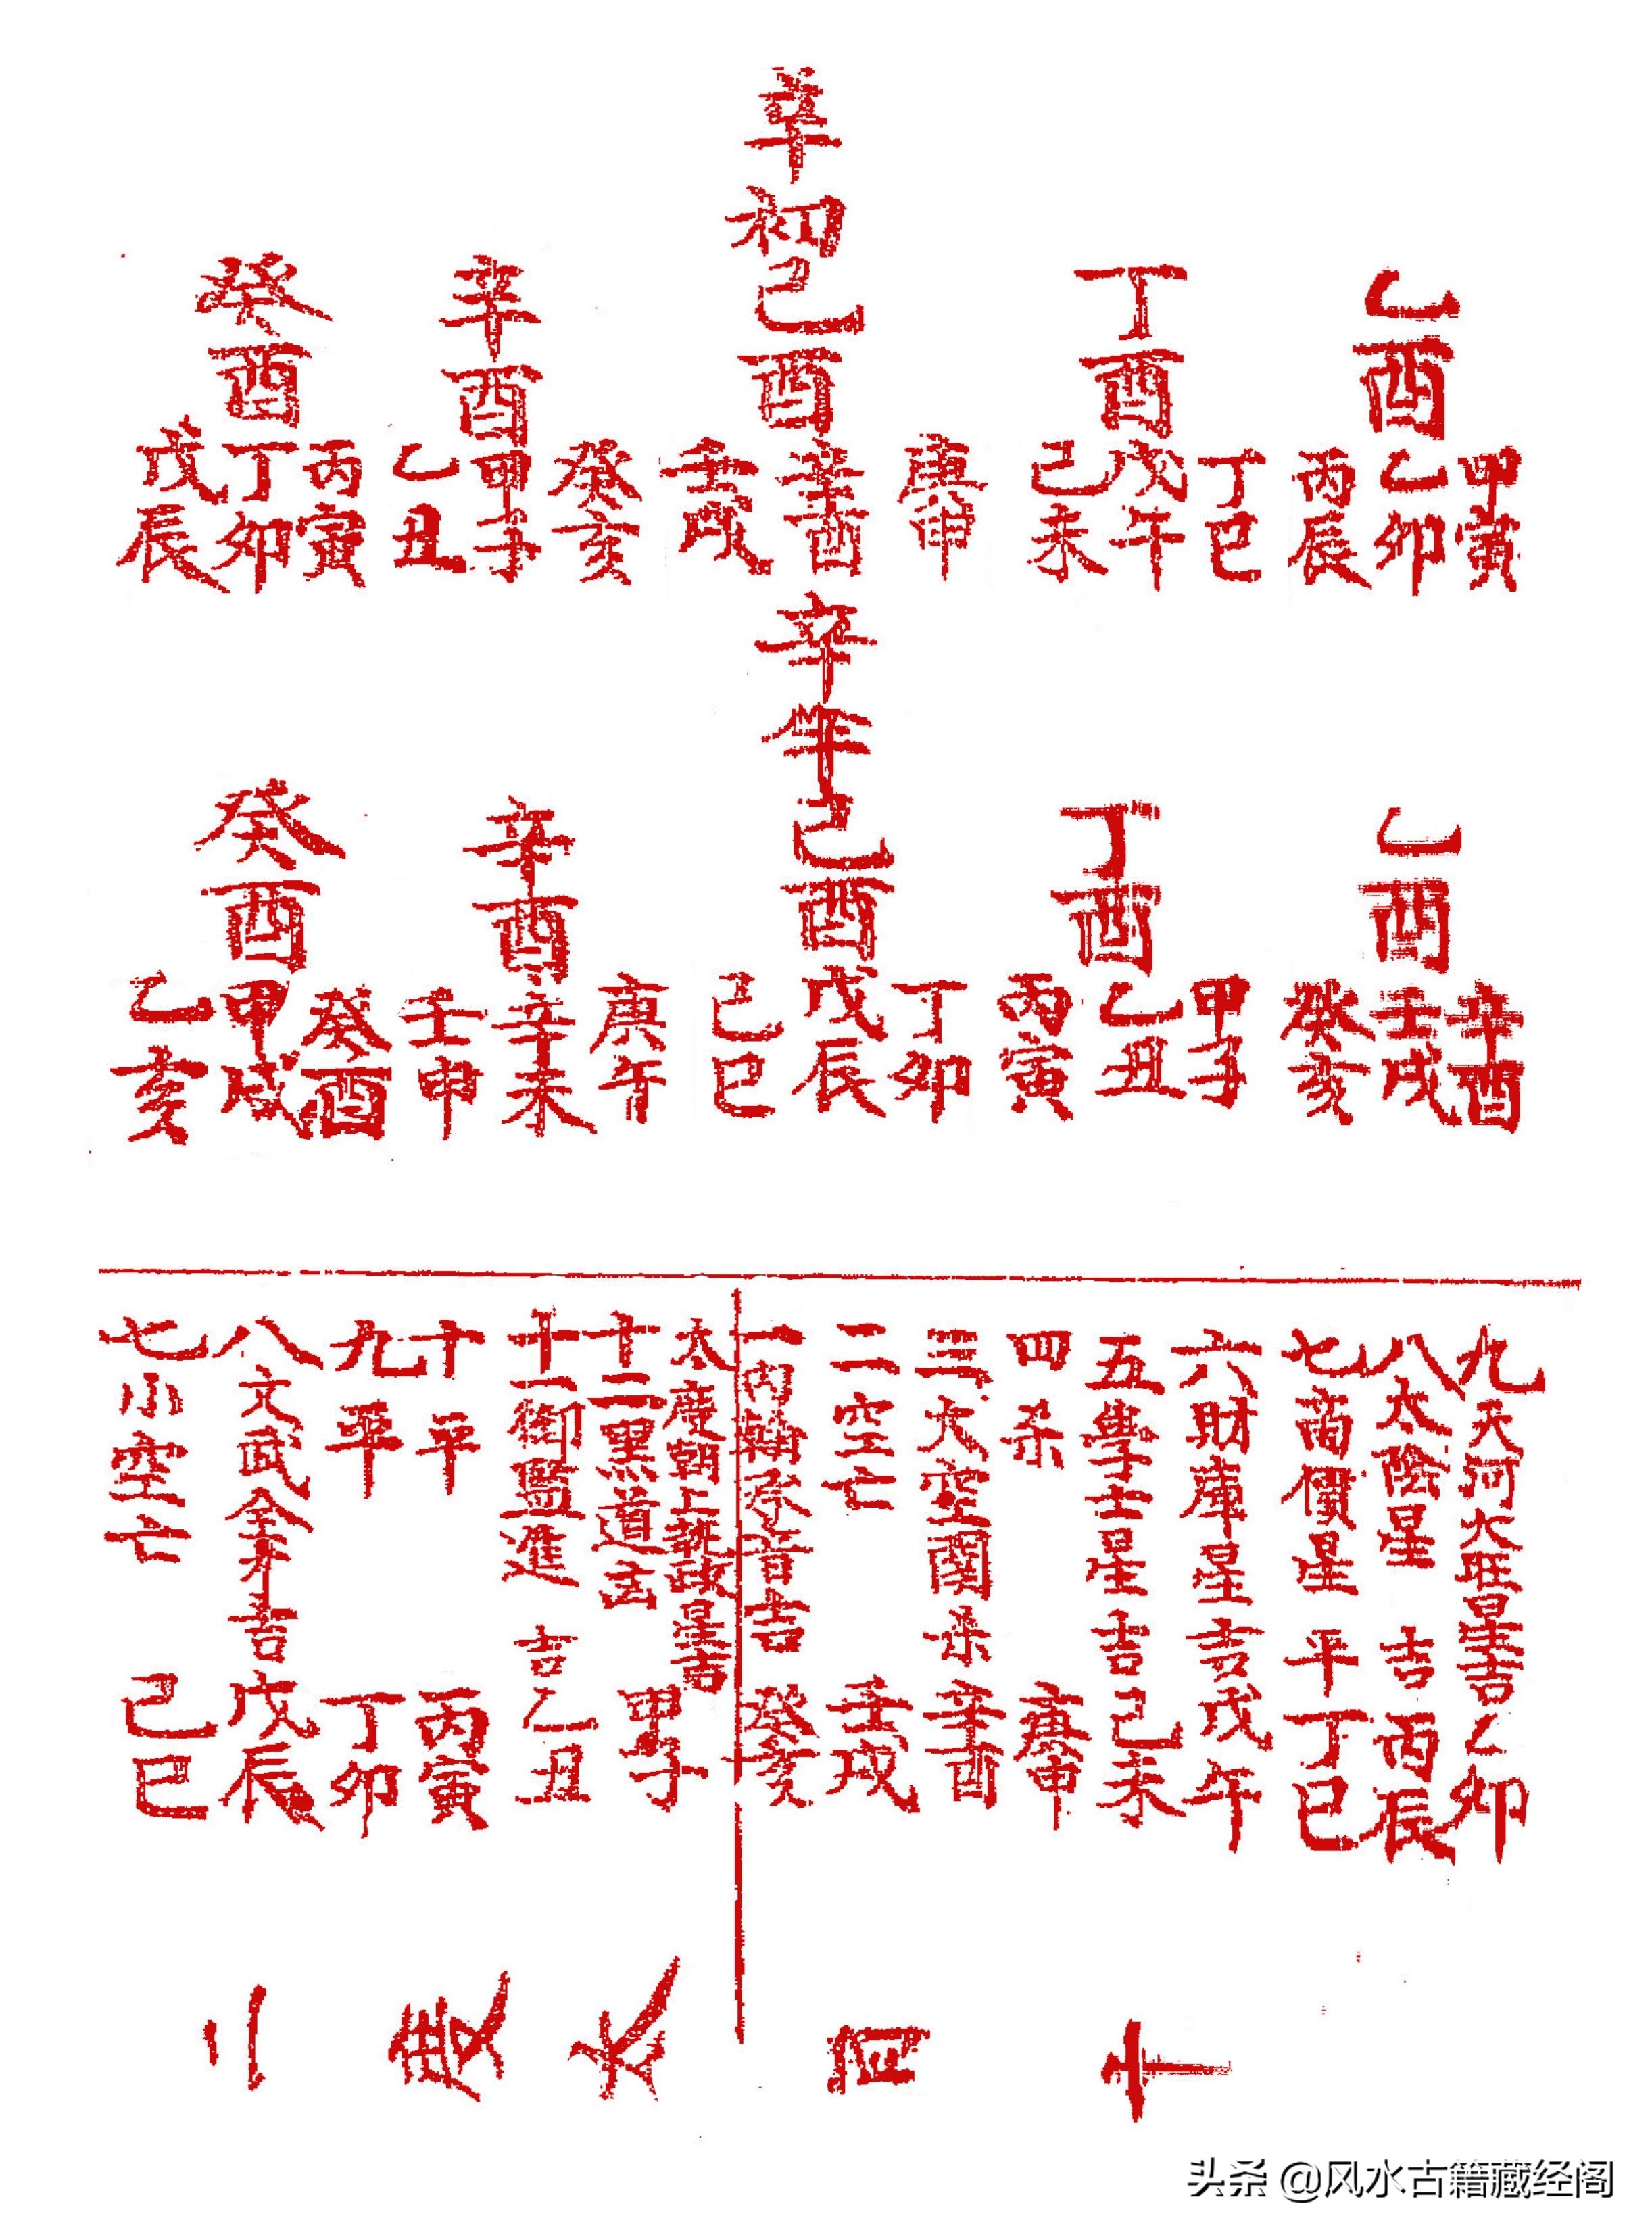 辛初
乙酉
丁酉
己酉
辛酉
癸酉
甲寅
乙卯
丙辰
丁巳
戊午
己未
庚申
辛酉
壬戌
癸亥
甲子
乙丑
丙寅
丁卯
戊辰
辛
乙酉
丁酉
己酉
辛酉
癸酉
辛酉
壬戌
癸亥
甲子
乙丑
丙寅
丁卯
戊辰
己巳
庚午
辛未
壬申
癸酉
甲戌
乙亥
九天河大旺星吉乙卯
八太陰星 吉 丙辰
七商價星 平 丁巳
六財庫星吉戊午
五學士星吉己未
四杀 庚申
三大空關杀辛酉
二空亡 壬戌
一内翰承旨吉 癸亥
太歲朝上星吉
十二黑道凶 甲子
十一御監進 吉 乙丑
十平 丙寅
九平 丁卯
八文武全才吉戊辰
七小空亡 己巳
头条 @风水古籍藏经阁